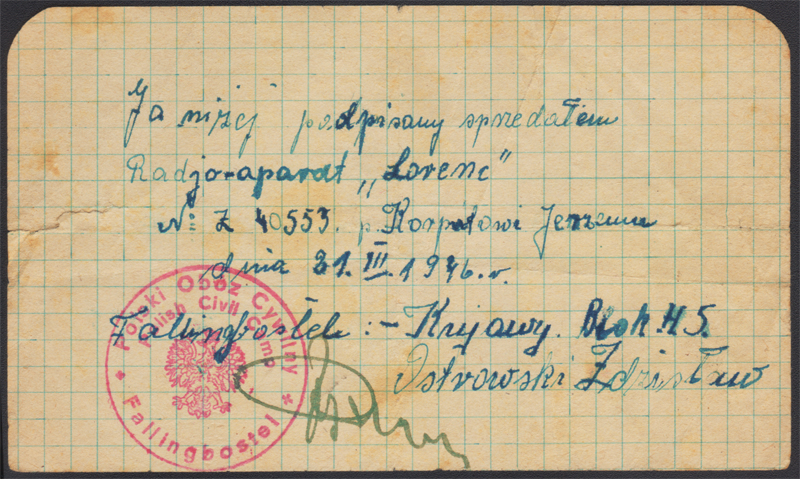 Ja niżej podpisany sprzedałem
Radjo-aparat „Lorenc"
№ Z 40553. p. Korpetowi Jerzemu
dnia 21. III. 1946. r.
Fallingbostel :- Krijowy. Blok H 5.
Ostrowski Zdzisław
Polski Obóz Cywilny
Polish Civil Camp
Fallingbostel